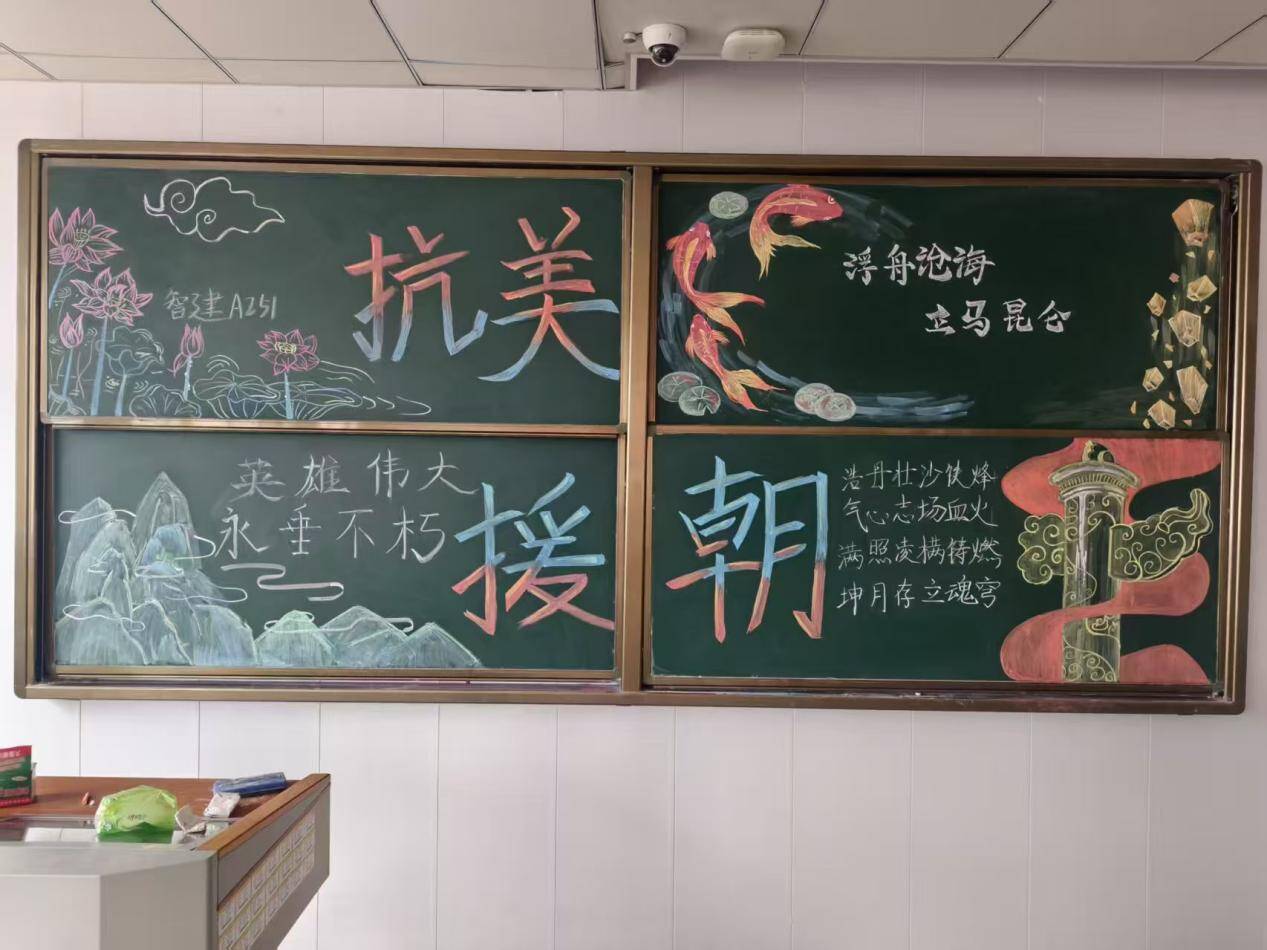 智建A251
抗美
援朝
英雄伟大
永垂不朽
浮舟沧海
立马昆仑
浩丹壮沙铁烽
气心志场血火
满照凌横铸燃
坤月存立魂穹